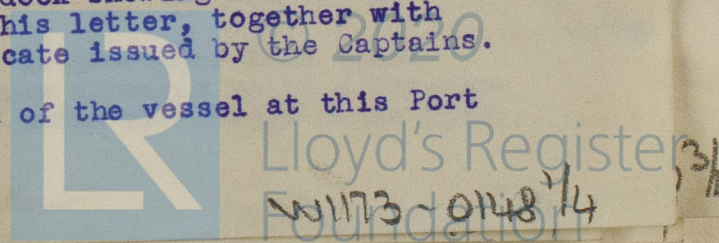 his letter, together with
cate issued by the Captains.
of the vessel at this Port
© 2020
LR
Lloyd's Register
Foundation
W1173-0148 1/4